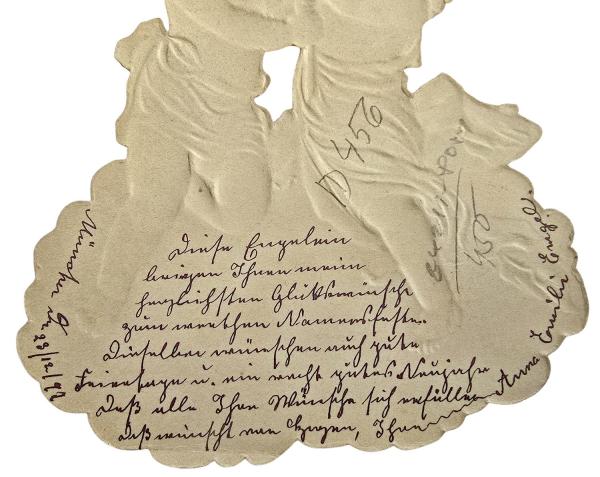 Diese Engelein
bringen Ihnen meine
herzlichsten Glückwünsche
zum werthen Namensfeste.
Dieselben wünschen auch gute
Feiertage u. ein recht gutes Neujahr
Daß alle Ihre Wünsche sich erfüllen
daß wünscht von Herzen, Ihnen Anna Emilie Engel.
München d. 23/12/
D 456